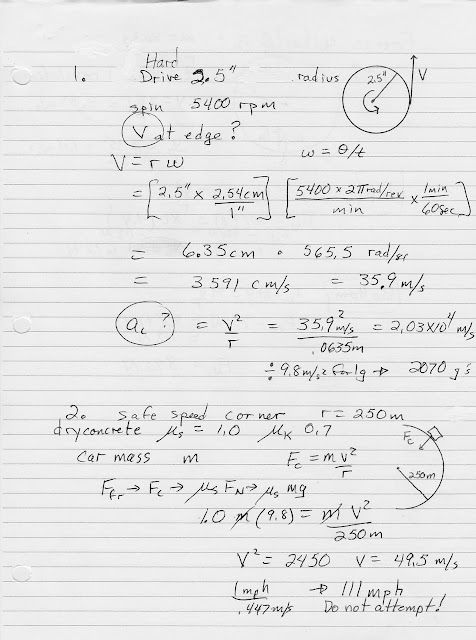 1. Hard
Drive 2.5" radius 2.5" V
spin 5400 rpm
V at edge?
ω = θ/t
V = r ω
= [2.5" × 2.54cm/1"] [5400 × 2π rad/rev/min × 1min/60sec]
= 6.35cm • 565.5 rad/sec
= 3591 cm/s = 35.9 m/s
ac ? = V²/r = 35.9² m/s/.0635m = 2.03×10⁴ m/s
÷ 9.8m/s² for 1g → 2070 g's
2. safe speed corner r = 250m
dry concrete μs = 1.0 μK 0.7
car mass m Fc = m v²/r
Fc
250m
Ffr → Fc → μs FN → μs mg
1.0 m (9.8) = m V²/250m
V² = 2450 V = 49.5 m/s
1mph/.447m/s → 111 mph
Do not attempt!